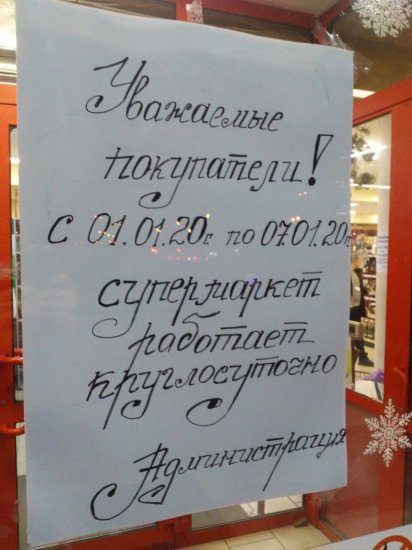 Уважаемые
покупатели!
с 01.01.20г. по 07.01.20г.
супермаркет
работает
круглосуточно
Администрация